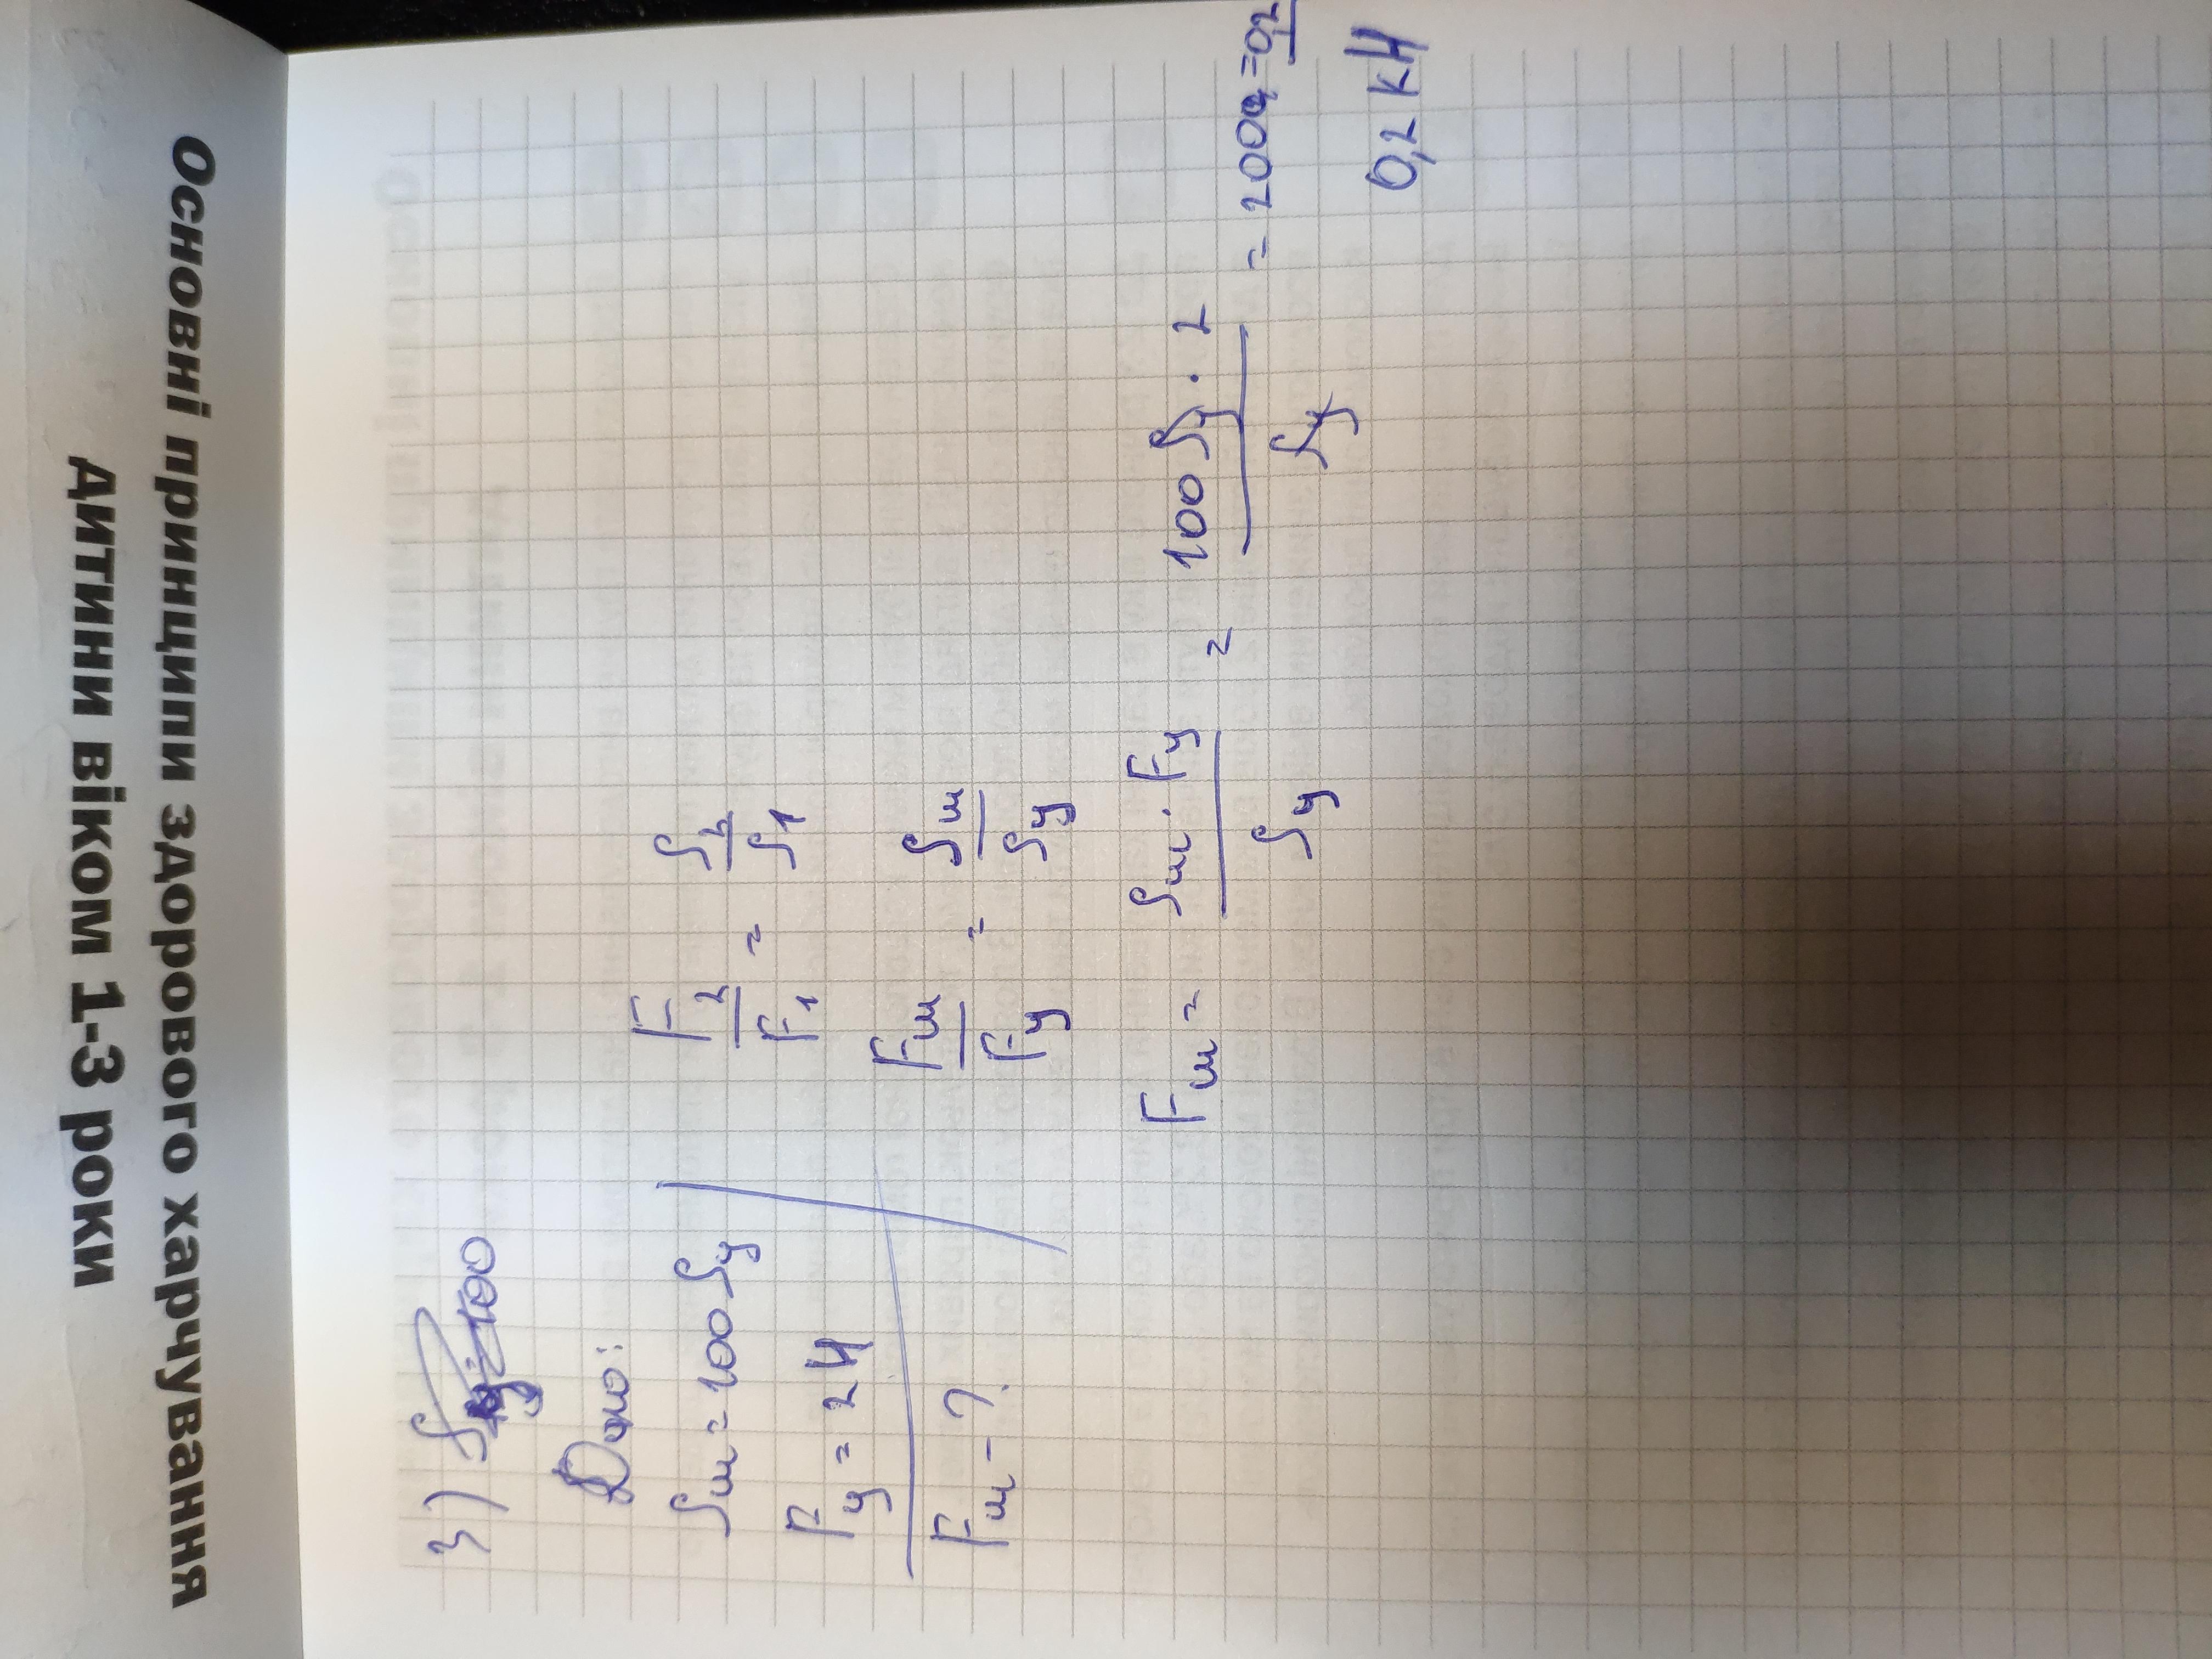 Основні принципи здорового харчування
дитини віком 1-3 роки
3)
Дано:
Sш = 100 Sу
Fу = 2 Н
Fш - ?
F2/F1 = S2/S1
Fш/Fу = Sш/Sу
Fш = Sш · Fу / Sу = 100 Sу · 2 / Sу = 200 = 0,2
0,2 кН